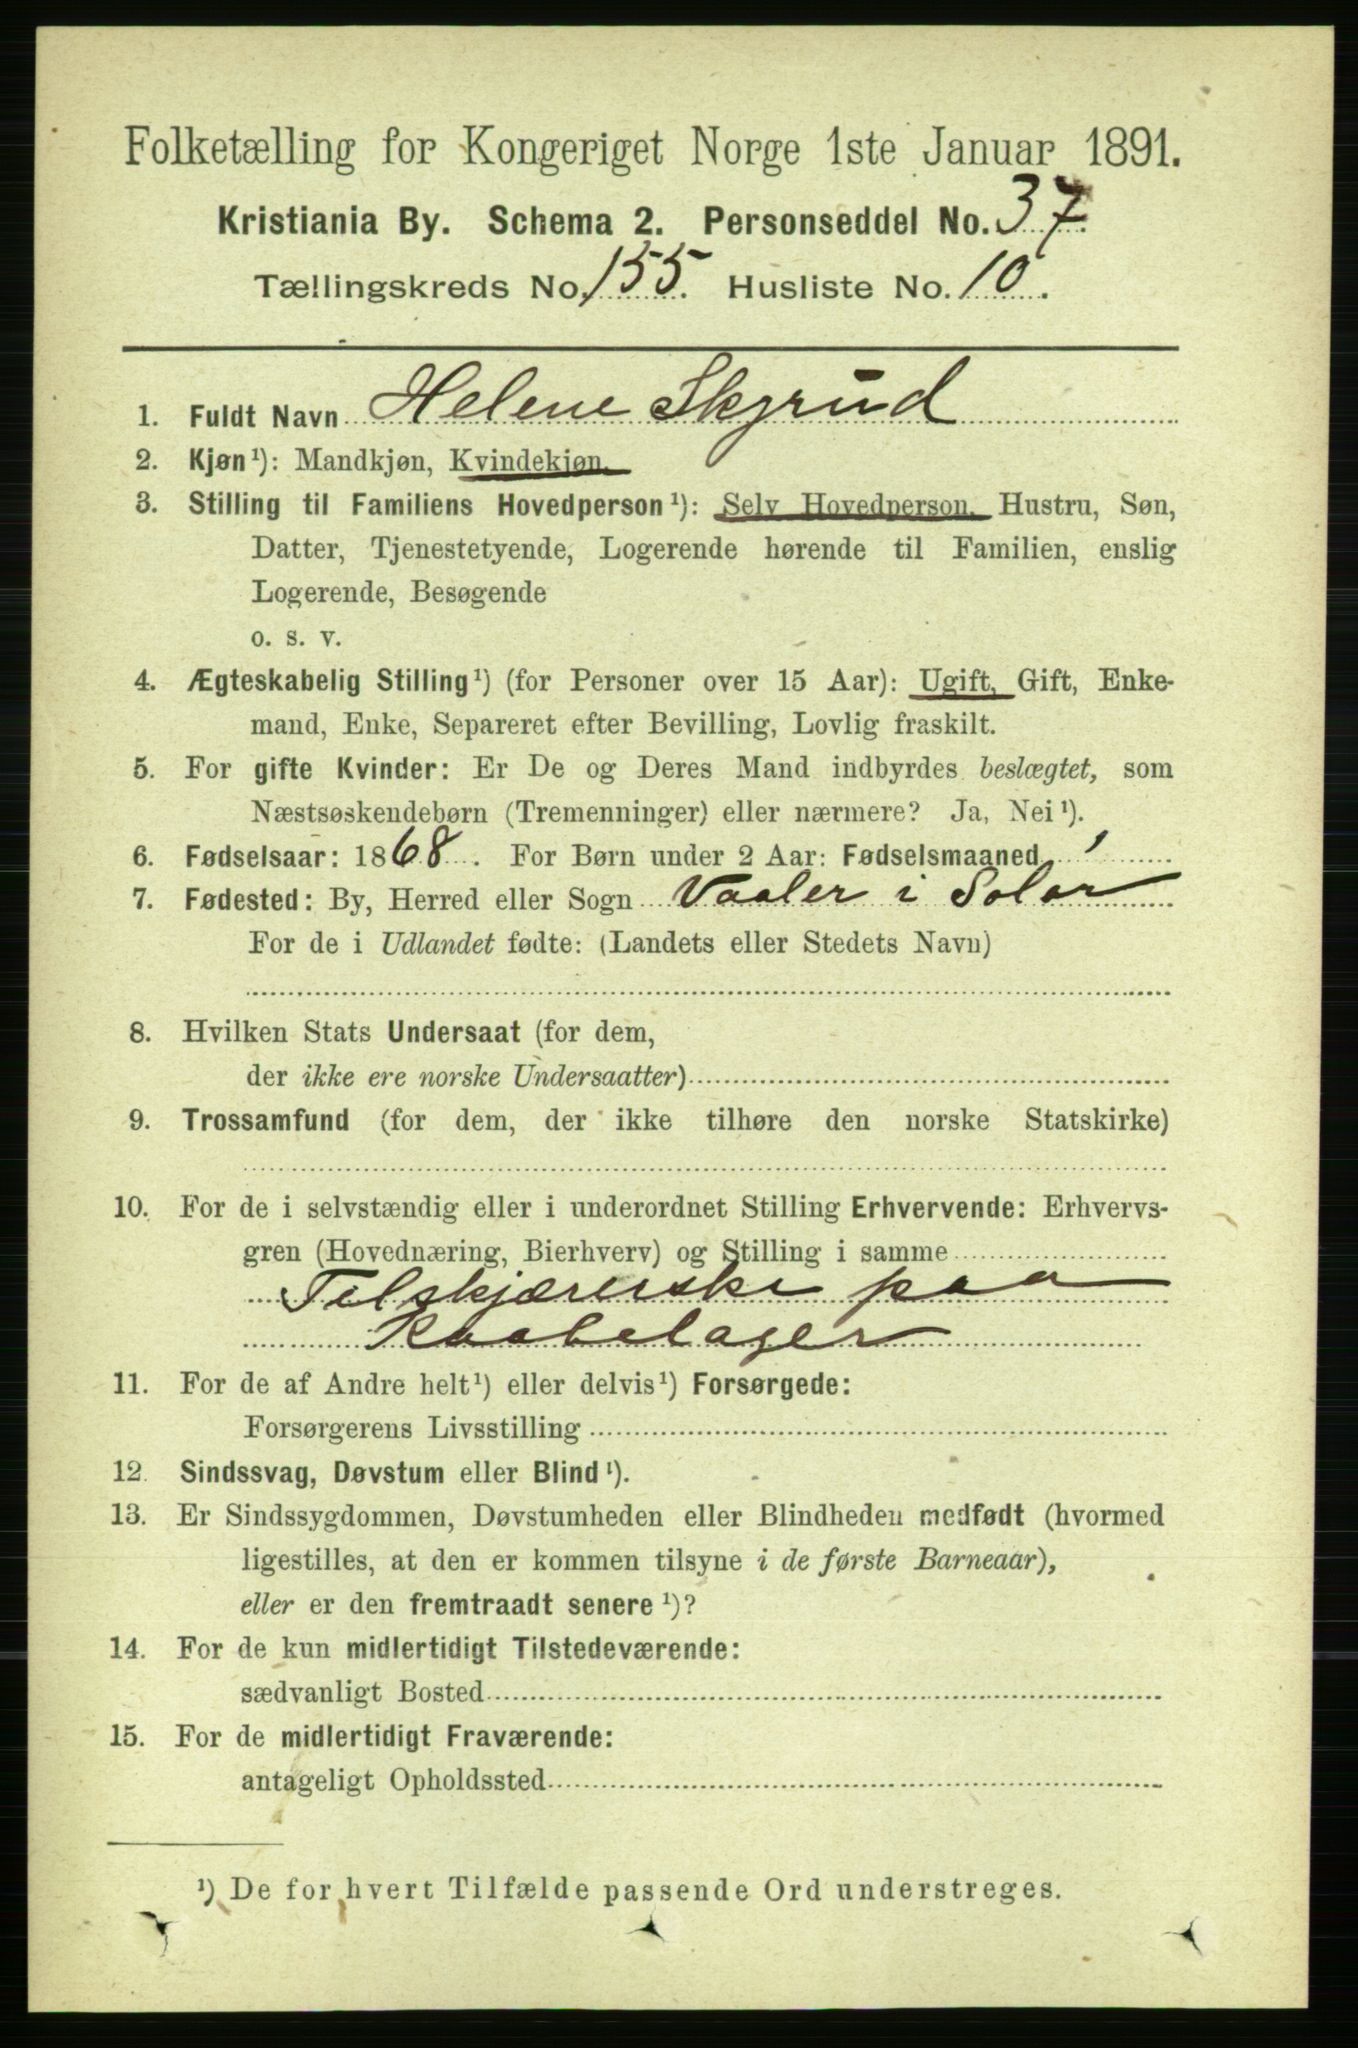 Folketælling for Kongeriget Norge 1ste Januar 1891.
Kristiania By. Schema 2. Personseddel No. 37.
Tællingskreds No. 155. Husliste No. 10.
1. Fuldt Navn Helene Skyrud
2. Kjøn¹): Mandkjøn, Kvindekjøn.
3. Stilling til Familiens Hovedperson¹): Selv Hovedperson, Hustru, Søn,
Datter, Tjenestetyende, Logerende hørende til Familien, enslig
Logerende, Besøgende
o. s. v.
4. Ægteskabelig Stilling¹) (for Personer over 15 Aar): Ugift, Gift, Enke-
mand, Enke, Separeret efter Bevilling, Lovlig fraskilt.
5. For gifte Kvinder: Er De og Deres Mand indbyrdes beslægtet, som
Næstsøskendebørn (Tremenninger) eller nærmere? Ja, Nei¹).
6. Fødselsaar: 1868. For Børn under 2 Aar: Fødselsmaaned
7. Fødested: By, Herred eller Sogn Vaaler i Solør
For de i Udlandet fødte: (Landets eller Stedets Navn)
8. Hvilken Stats Undersaat (for dem,
der ikke ere norske Undersaatter)
9. Trossamfund (for dem, der ikke tilhøre den norske Statskirke)
10. For de i selvstændig eller i underordnet Stilling Erhvervende: Erhvervs-
gren (Hovednæring, Bierhverv) og Stilling i samme
Tilskjærerske paa
Kaabelager
11. For de af Andre helt¹) eller delvis¹) Forsørgede:
Forsørgerens Livsstilling
12. Sindssvag, Døvstum eller Blind¹).
13. Er Sindssygdommen, Døvstumheden eller Blindheden medfødt (hvormed
ligestilles, at den er kommen tilsyne i de første Barneaar),
eller er den fremtraadt senere¹)?
14. For de kun midlertidigt Tilstedeværende:
sædvanligt Bosted
15. For de midlertidigt Fraværende:
antageligt Opholdssted
¹) De for hvert Tilfælde passende Ord understreges.